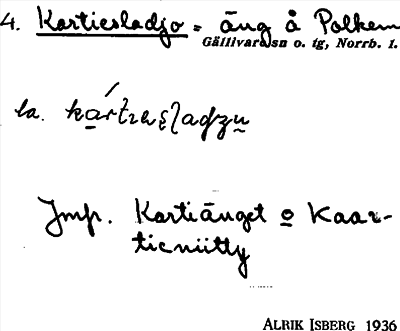 4. Kartiesladjo = äng å Polkem
Gällivare sn o. tg, Norrb. l.
la.
Jmf. Kartiänget o Kaar-
tieniitty
ALRIK ISBERG 1936